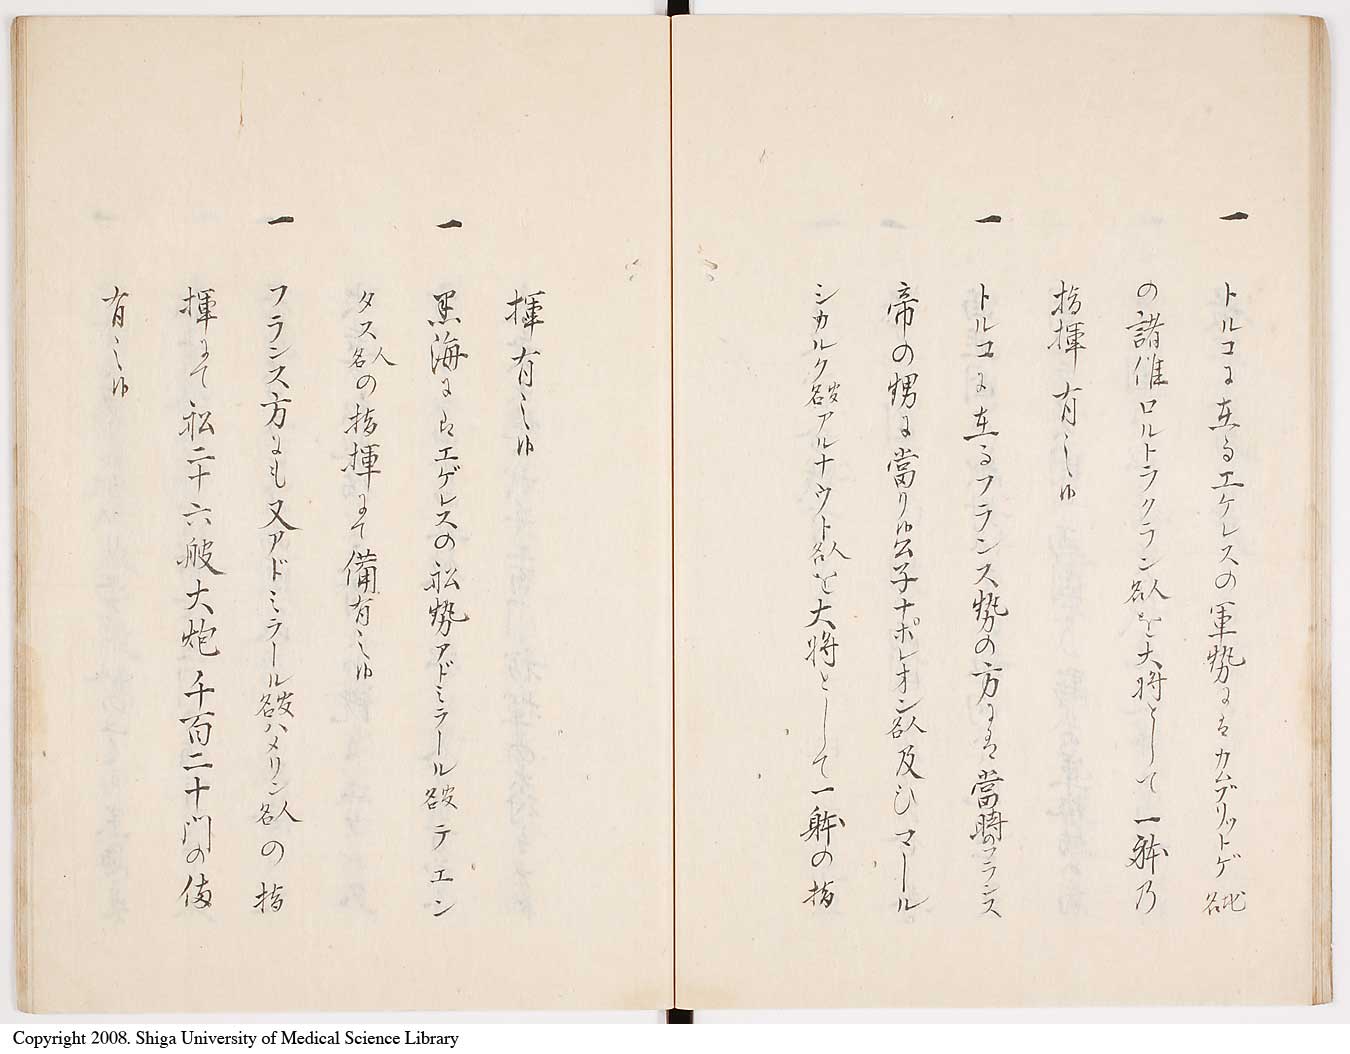 一 トルコニ在るエケレスの軍勢にはカムブリットゲ地名
の諸侯ロルトラクラン人名を大将として一躰乃
指揮有之候
一 トルコニ在るフランス勢の方ニは當時のフランス
帝の甥ニ當り候公子ナポレオン人名及ひマール
シカルク官名アルナウト人名を大将として一躰の指
揮有之候
一 黒海ニはエゲレスの舩勢アドミラール官名デエン
タス人名の指揮ニて備有之候
一 フランス方ニも又アドミラール官名ハメリン人名の指
揮ニて舩二十六艘大炮千百二十門の備
有之候
Copyright 2008. Shiga University of Medical Science Library